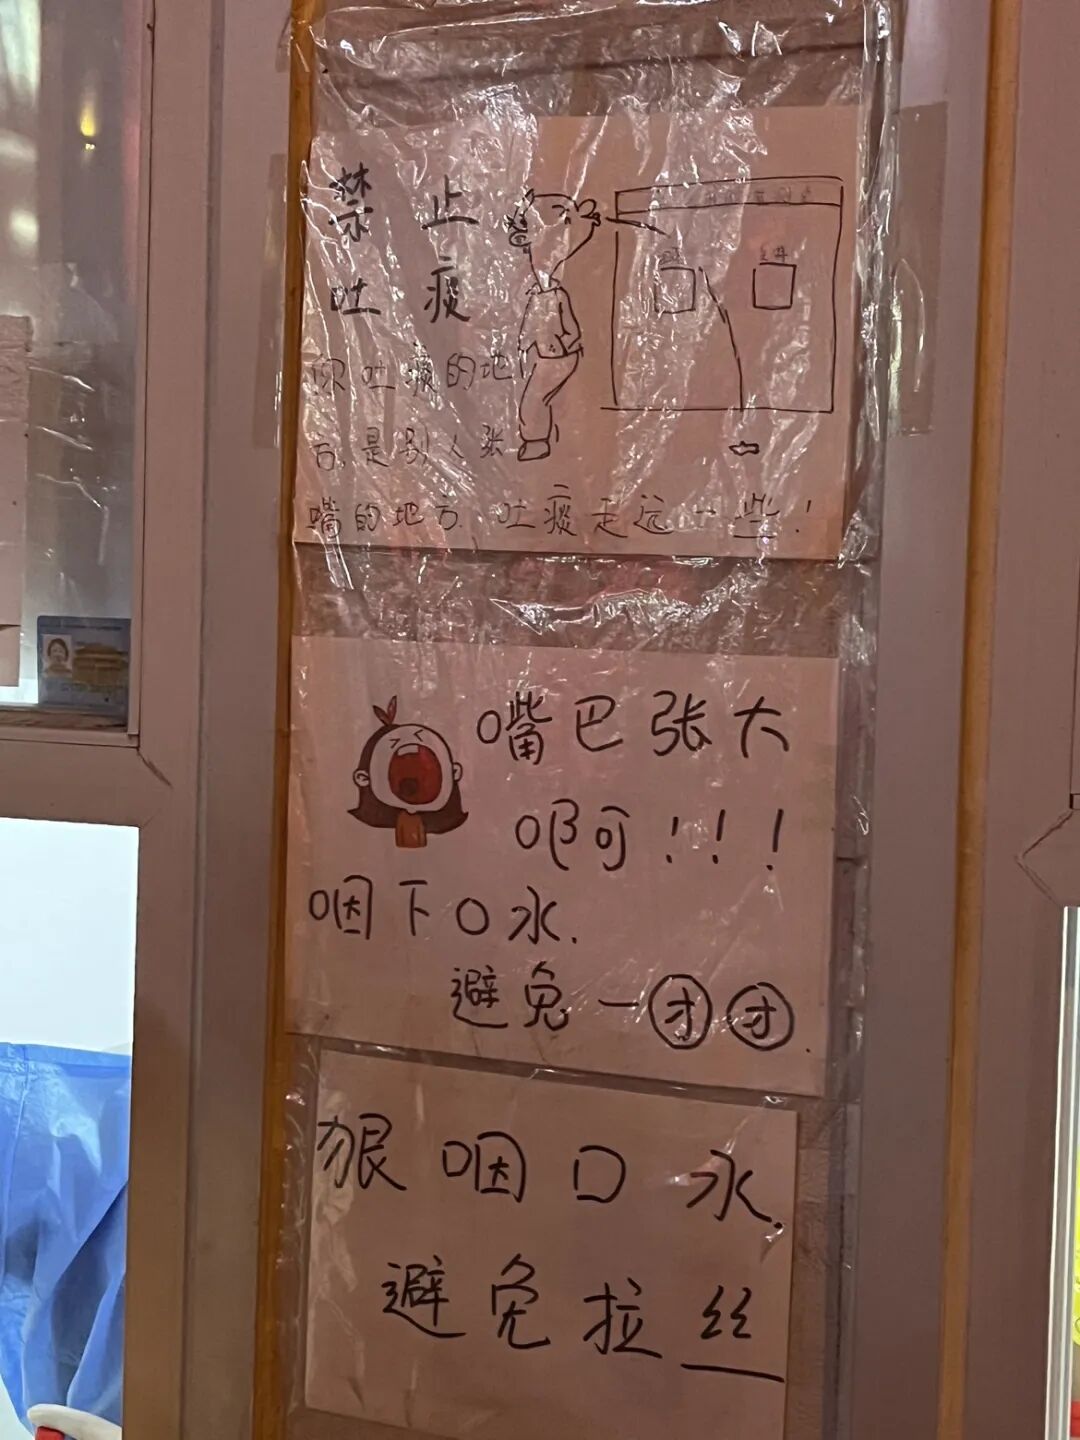 禁止
吐痰
你吐痰的地
方,是别人张
嘴的地方.吐痰走远一些!
嘴巴张大
啊!!!
咽下口水.
避免一团团.
狠咽口水.
避免拉丝